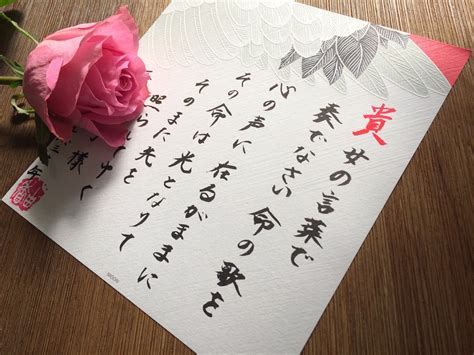 貴女の言葉で
奏でなさい 命の歌を
心の声に 在るがままに
その命は光となりて
そのまた先を
照らし
ゆく
様